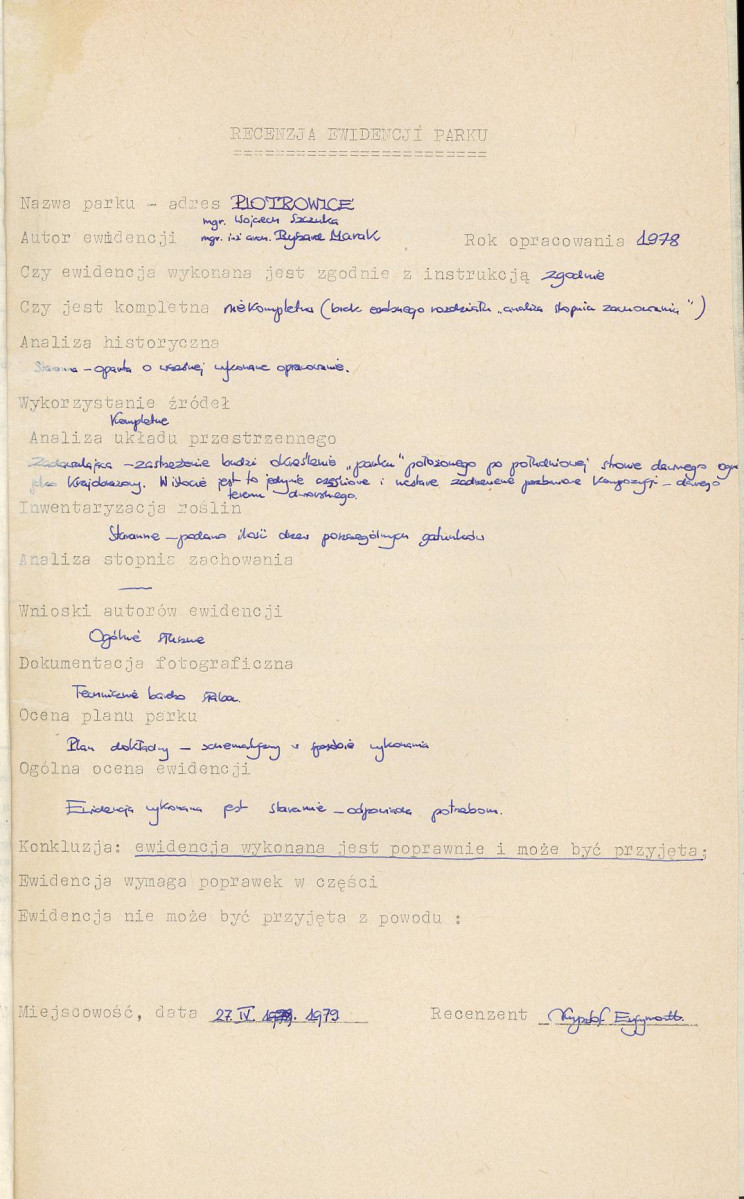 RECENZJA EWIDENCJI PARKU
Nazwa parku - adres PIOTROWICE
mgr. Wojciech
Autor ewidencji mgr. inż arch. Ryszard Marak Rok opracowania 1978
Czy ewidencja wykonana jest zgodnie z instrukcją zgodnie
Czy jest kompletna niekompletna (brak osobnego rozdziału „analiza stopnia zachowania")
Analiza historyczna
- oparta o wcześniej wykonane opracowanie.
Wykorzystanie źródeł
Kompletne
Analiza układu przestrzennego
Zadawalająca - zastrzeżenie budzi określenie „parku" położonego po południowej stronie dawnego
jako Krajobrazowy. W istocie jest to jedynie i zadrzewienie kompozycji - dawnego
terenu dworskiego.
Inwentaryzacja roślin
Staranna - podano ilość drzew poszególnych gatunków
Analiza stopnia zachowania
—
Wnioski autorów ewidencji
Ogólnie słuszne
Dokumentacja fotograficzna
Technicznie bardzo słaba.
Ocena planu parku
Plan dokładny - schematyczny w wykonania
Ogólna ocena ewidencji
Ewidencja wykonana jest starannie - odpowiada potrzebom.
Konkluzja: ewidencja wykonana jest poprawnie i może być przyjęta;
Ewidencja wymaga poprawek w części
Ewidencja nie może być przyjęta z powodu :
Miejscowość, data 27.IV. 1979 Recenzent Krzysztof